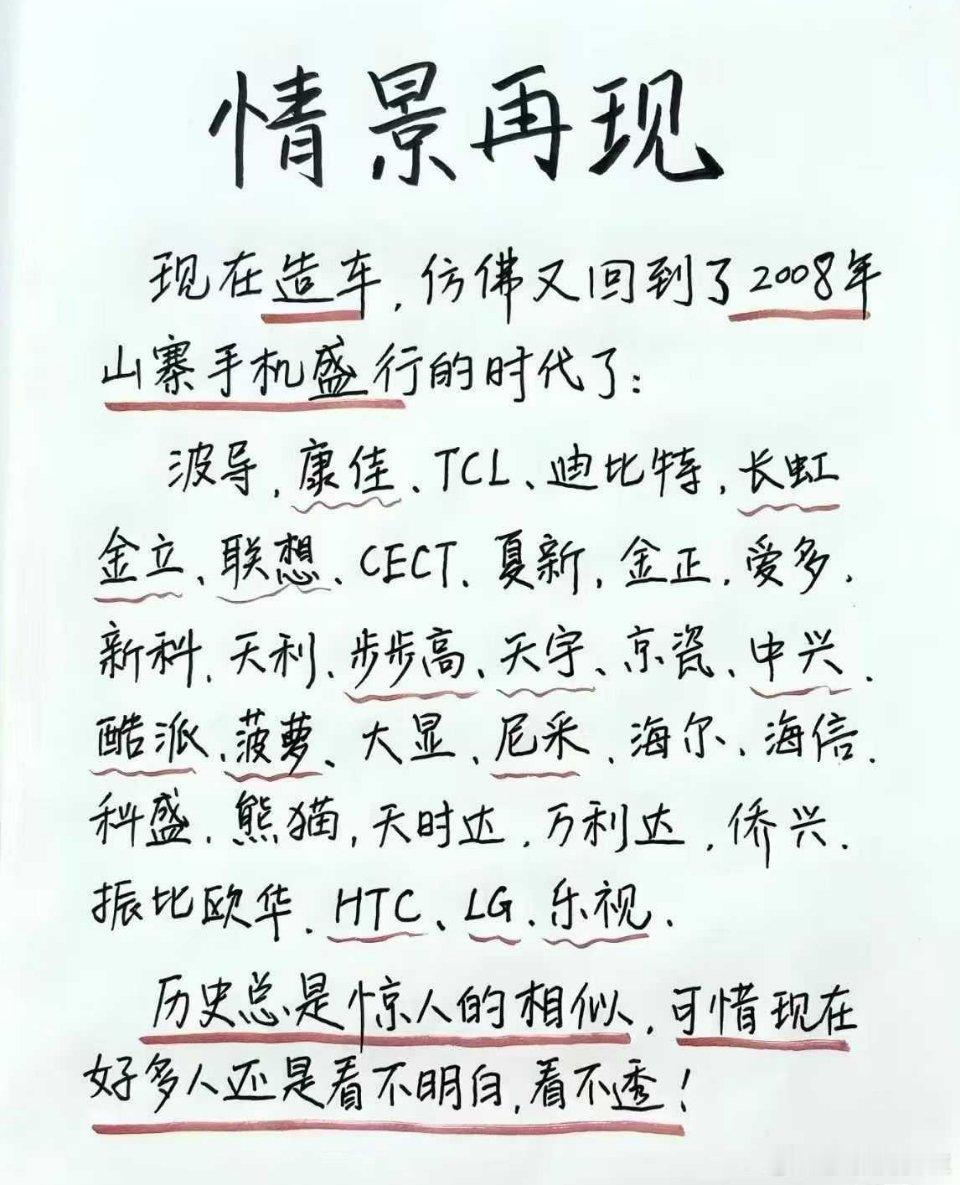 情景再现
现在造车,仿佛又回到了2008年
山寨手机盛行的时代了:
波导、康佳、TCL、迪比特、长虹
金立、联想、CECT、夏新、金正、爱多、
新科、天利、步步高、天宇、京瓷、中兴、
酷派、菠萝、大显、尼采、海尔、海信、
科盛、熊猫,天时达、万利达、侨兴、
振比欧华、HTC、LG、乐视、
历史总是惊人的相似,可惜现在
好多人还是看不明白,看不透!